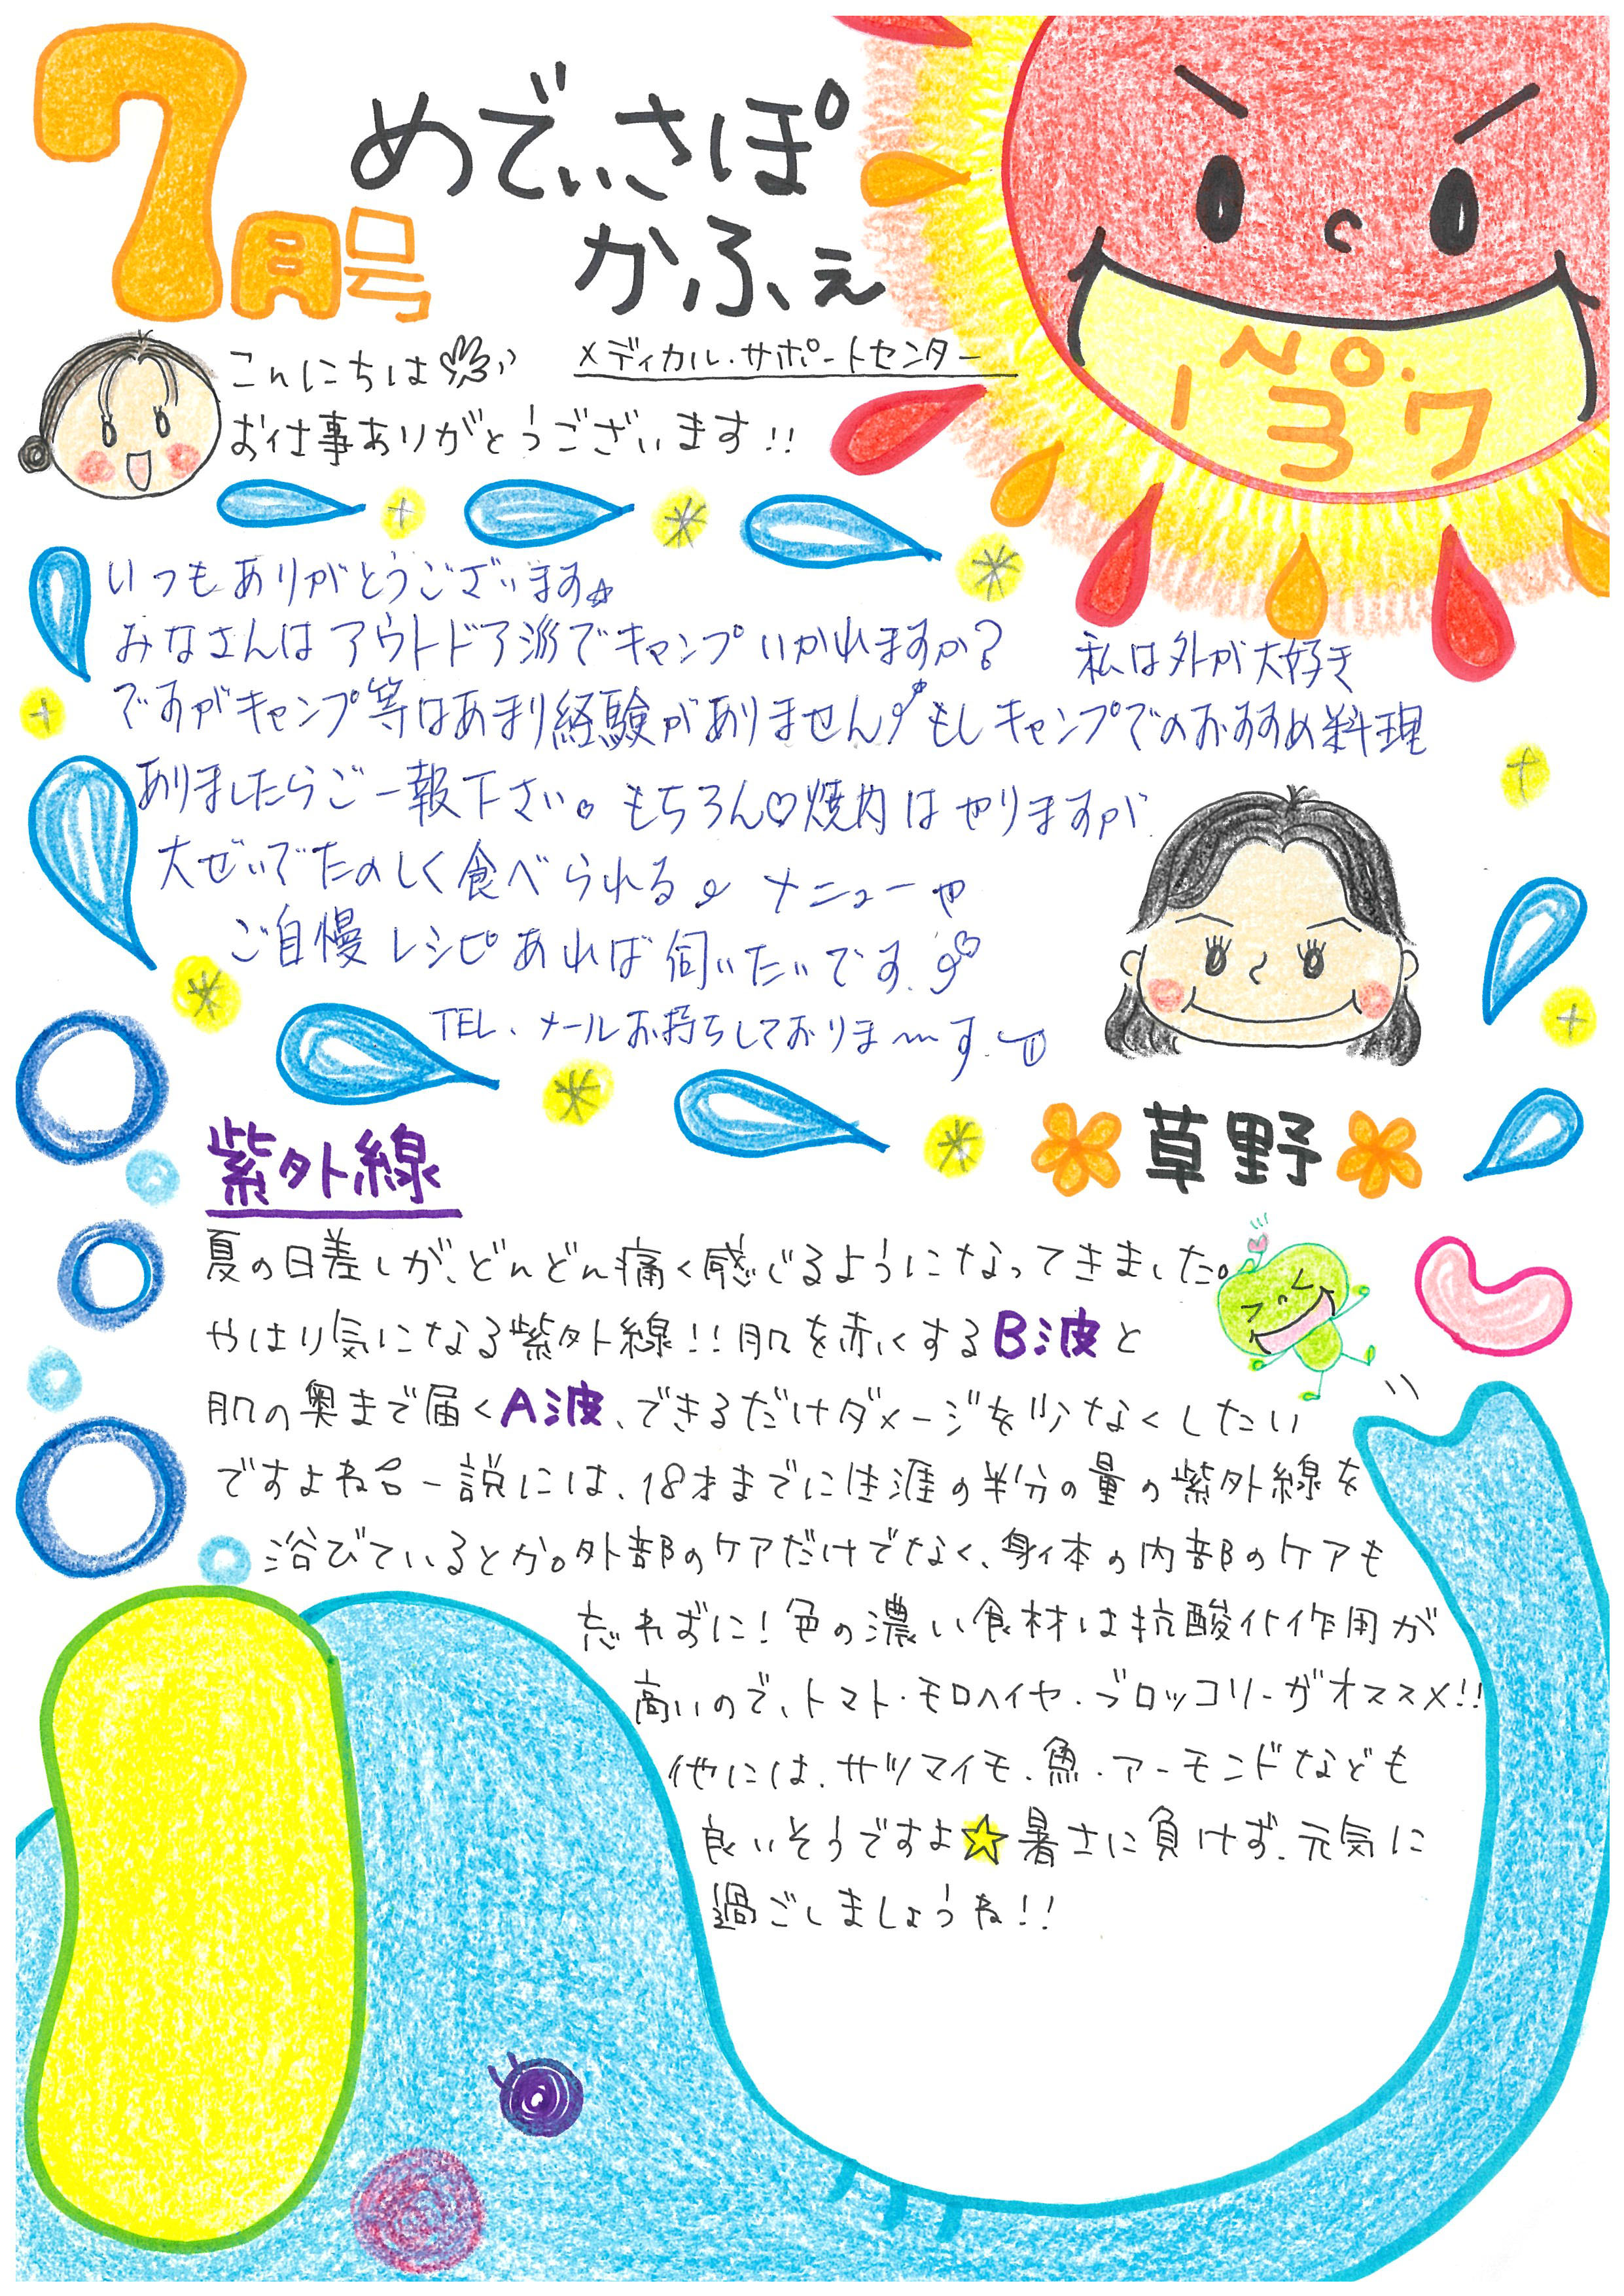 7月号
めでぃさぽ
かふぇ
No.
137
メディカル・サポートセンター
こんにちは
お仕事ありがとうございます!!
いつもありがとうございます
みなさんはアウトドア派でキャンプいかれますか? 私は外が大好き
ですがキャンプ等はあまり経験がありません!もしキャンプでのおすすめ料理
ありましたらご一報下さい。もちろん♡焼肉はやりますが
大ぜいでたのしく食べられる メニューや
ご自慢レシピあれば伺いたいです。
TEL・メールお持ちしておりま〜す。
草野
紫外線
夏の日差しが、どんどん痛く感じるようになってきました。
やはり気になる紫外線!!肌を赤くするB波と
肌の奥まで届くA波、できるだけダメージを少なくしたい
ですよね 一説には、18才までに生涯の半分の量の紫外線を
浴びているとか。外部のケアだけでなく、身体の内部のケアも
忘れずに!色の濃い食材は抗酸化作用が
高いので、トマト・モロヘイヤ・ブロッコリーがオススメ!!
他には、サツマイモ、魚・アーモンドなども
良いそうですよ☆暑さに負けず、元気に
過ごしましょうね!!